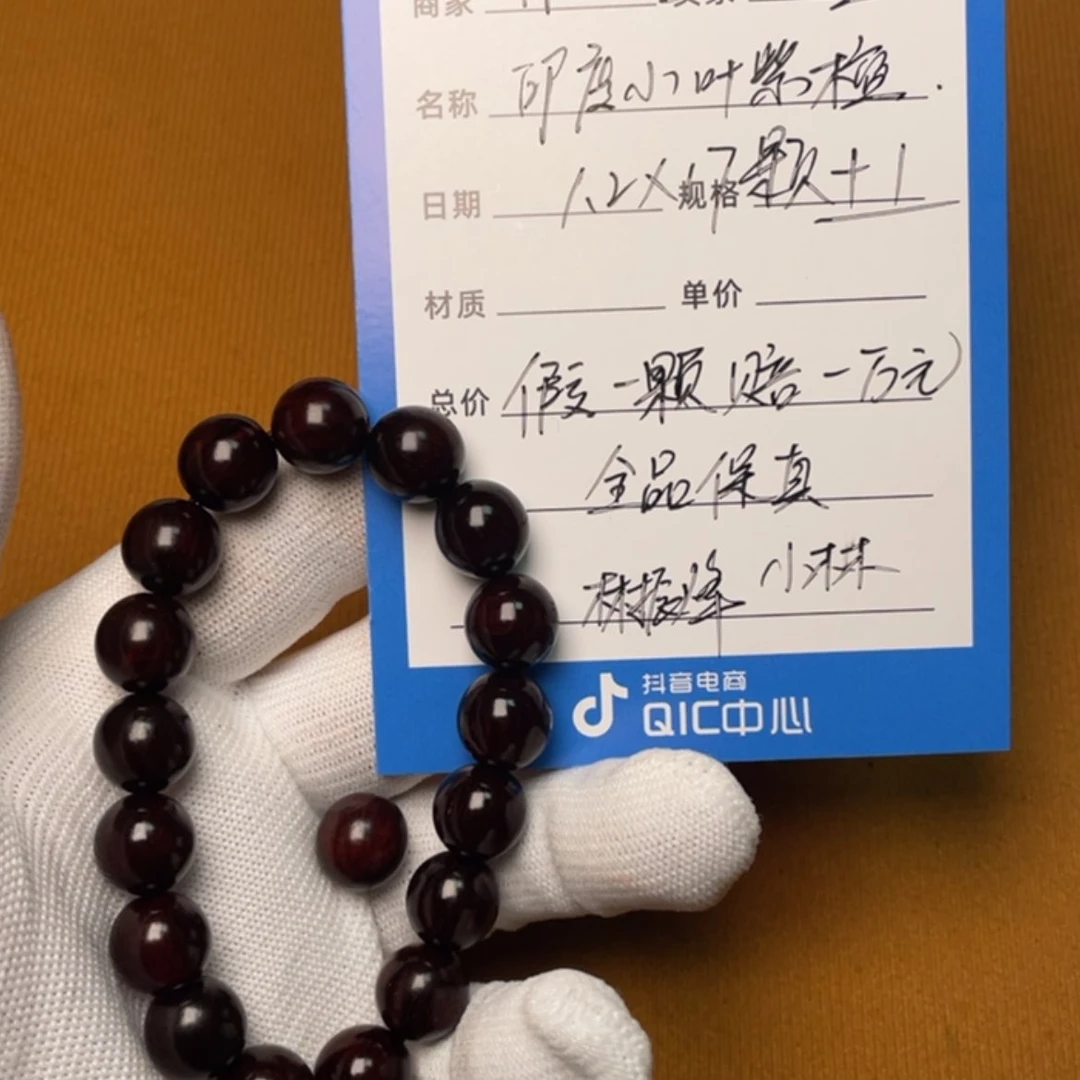 商家
名称 印度小叶紫檀.
日期 1.2X17颗+1 规格
材质 单价
总价 假一颗赔一万元
全品保真
林振烽 小林
抖音电商
QIC中心